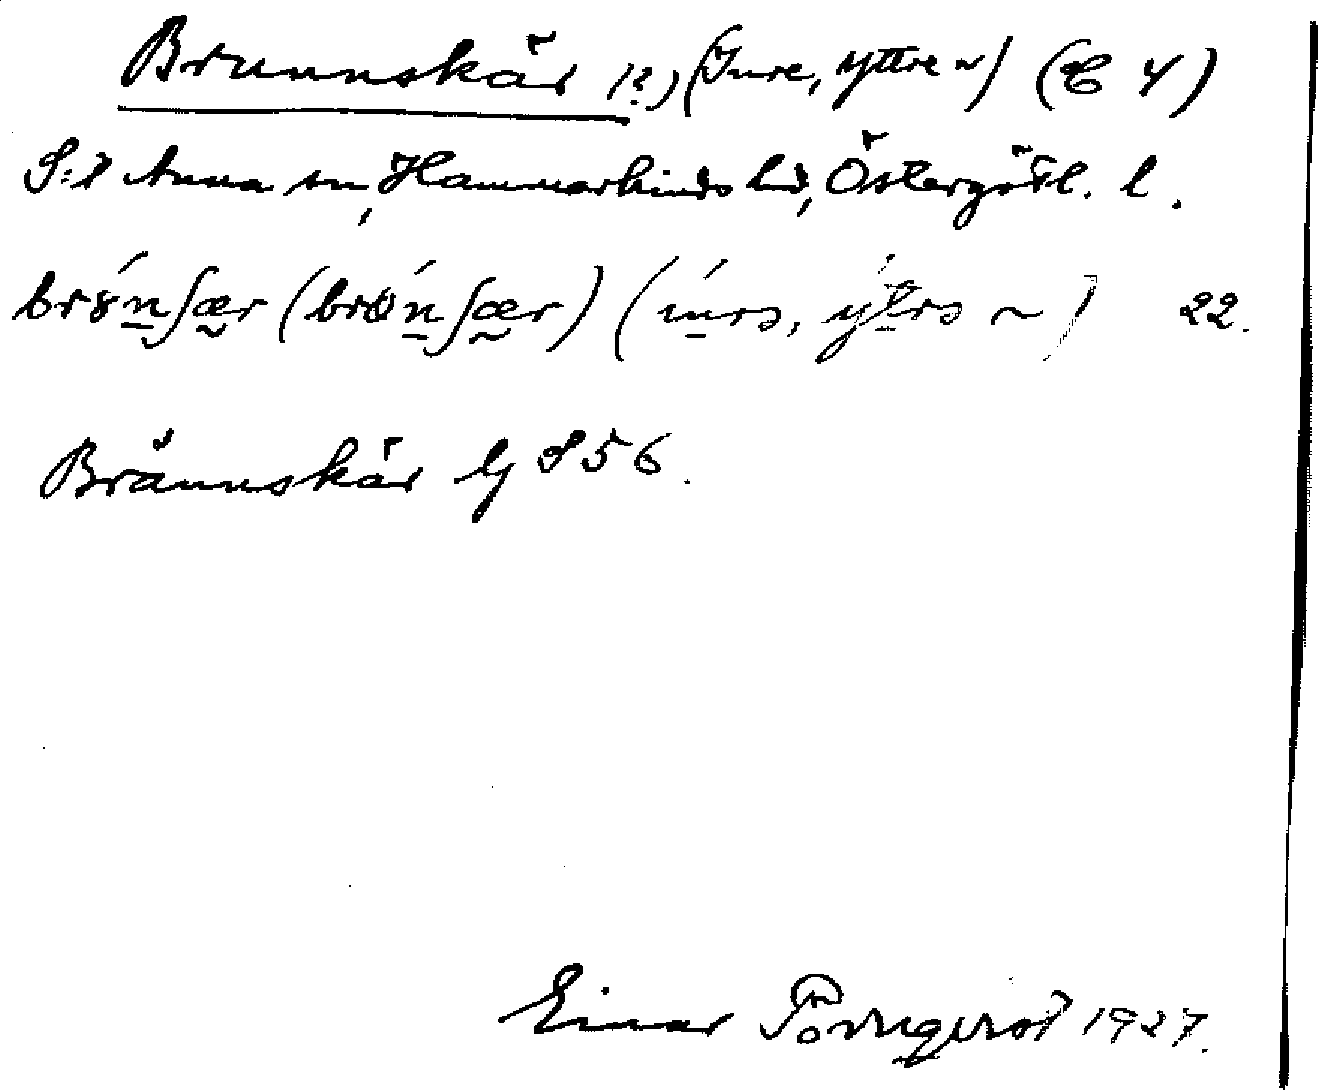 Brunnskär (?) (Inre, yttre ~) (C 4)
S:t Anna sn, Hammarkinds hd, Östergötl. l.
br8́n̲ʃær (brón̲ʃær) (ín̲rə, ýt̲rə ~) 22.
Brännskär Gj 856.
Einar Törnqvist 1927.